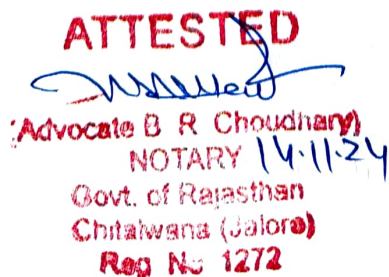 ATTESTED
(Advocate B R Choudhary)
NOTARY 14.11.24
Govt. of Rajasthan
Chitalwana (Jalore)
Reg No 1272